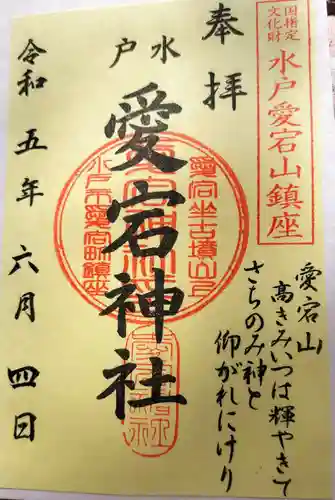 国指定
文化財
水戸愛宕山鎮座
奉拝
水戸
愛宕神社
愛宕山
高きみいつは輝やきて
さちのみ神と
仰がれにけり
愛宕坐古墳山上
水戸市愛宕町鎮座
令和五年六月四日